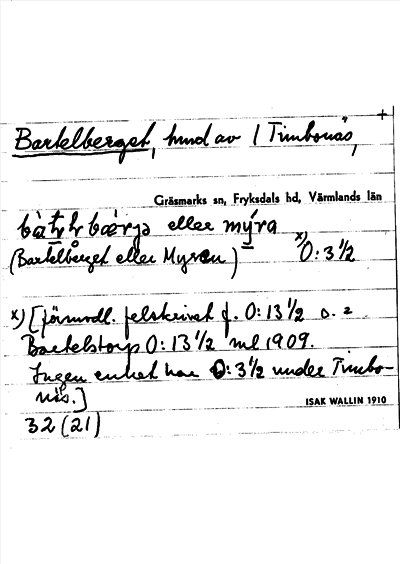 +
Bartelberget, hmd av 1 Timbonäs,
Gräsmarks sn, Fryksdals hd, Värmlands län
eller mýra
(Bartelbärget eller Myren) x) 0: 3 1/2
x) [förmodl. felskrivet f. 0: 13 1/2 o. =
Bartelstorp 0: 13 1/2 ml 1909.
Ingen enhet har 0: 3 1/2 under Timbo-
näs.]
ISAK WALLIN 1910
32 (21)